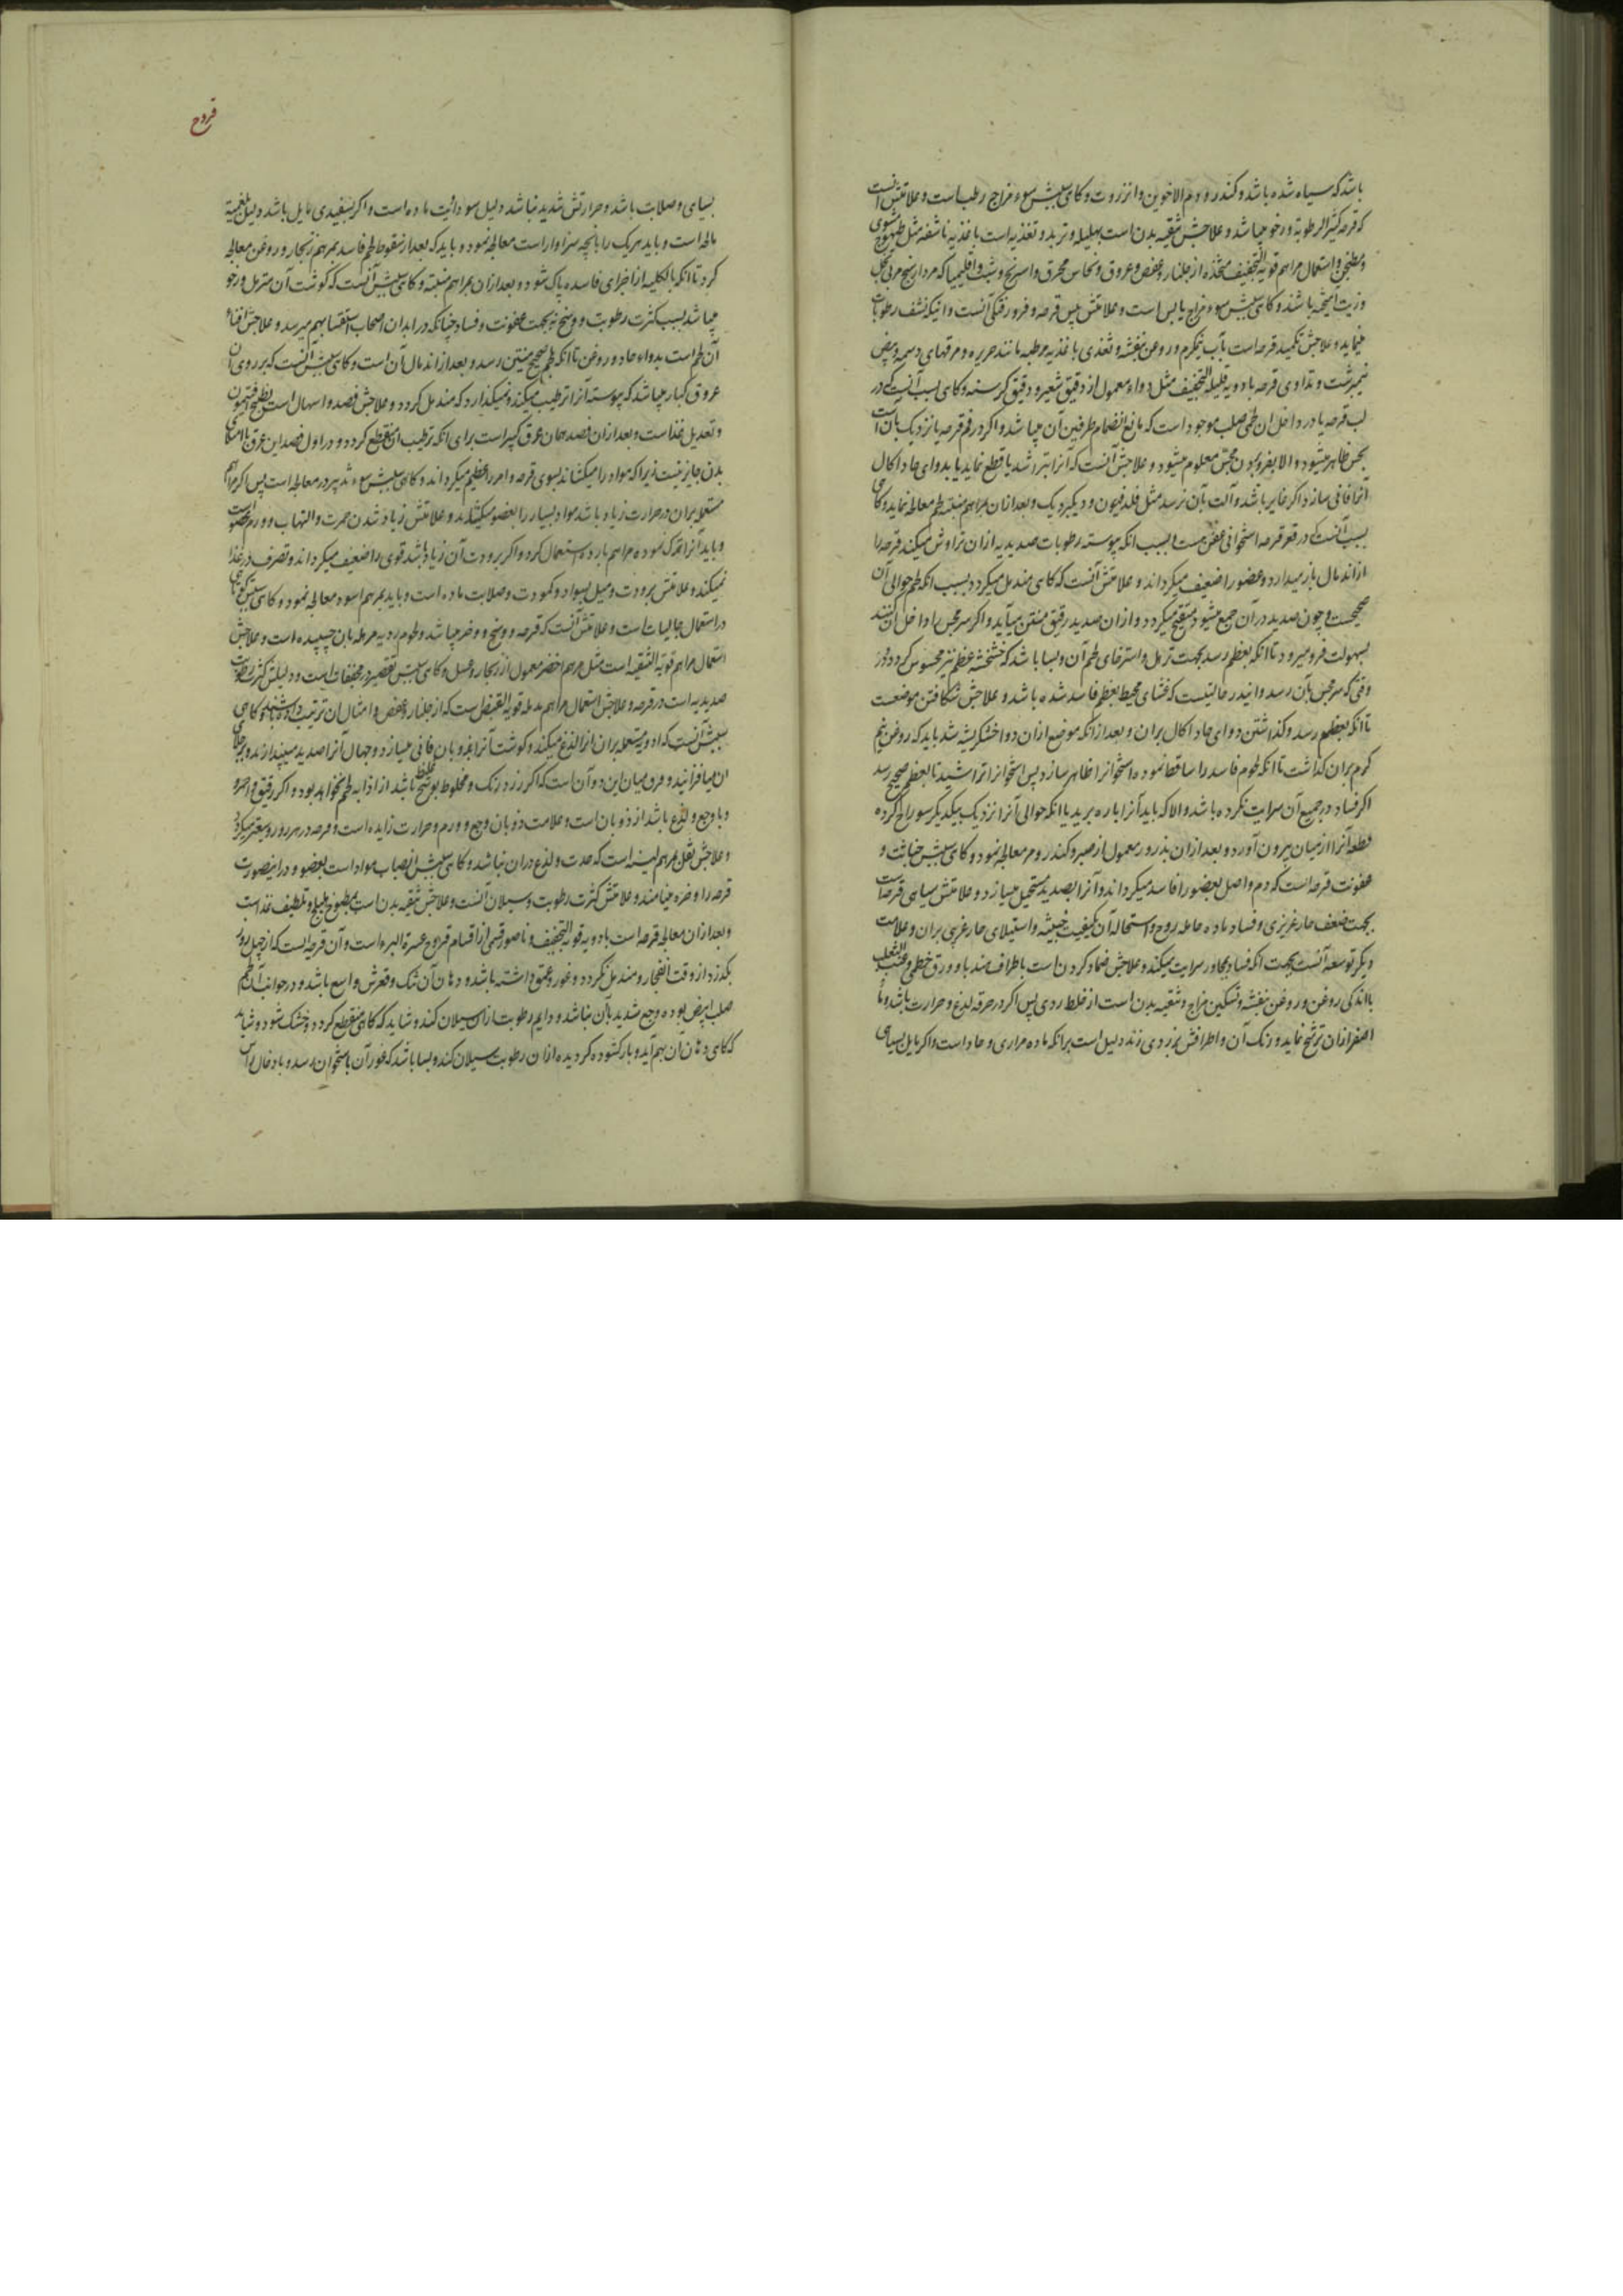 باشد که سیاه شده باشد و کندر و دم الاخوین و انزروت و کاهی سببش سوء مزاج رطب است و علامتش آنست
که قرحه کثیر الرطوبة و رخو میباشد و علاجش تنقیه بدن است بهلیله و تربد و تغذیه است باغذیه ناشفه مثل طیهوج مشوی
و مطنجن و استعمال مراهم قویة التجفیف متخذه از جلنار و عفص و عروق و نحاس محرق و اسرنج و شب و اقلیمیا که مردارسنج مربی بخل
و زیت آمیخته باشند و کاهی سببش سوء مزاج یابس است و علامتش یبس قرحه و فرورفتکی آنست و آنیکه نشف رطوبات
مینماید و علاجش تکمید قرحه است بآب نیمکرم و روغن بنفشه و تغذی باغذیه مرطبه مانند حریره و مرقهای دسمه و بیض
نیمبرشت و تداوی قرحه بادویه قلیلة التجفیف مثل دواء معمول از دقیق شعیر و دقیق کرسنه و کاهی سبب آنست که در
لب قرحه یا در داخل آن لحمی صلب موجود است که مانع انضمام طرفین آن میباشد و اکر در فم قرحه یا نزدیک بآن است
بحس ظاهر میشود و الا بفرو بردن مجس معلوم میشود و علاجش آنست که آنرا بتراشد یا قطع نماید یا بدوای حاد اکال
آنرا فانی سازد اکر غایر باشد و آلت بآن نرسد مثل فلدفیون و دیکبردیک و بعد ازان بمراهم منبته لحم معالجه نماید و کاهی
سبب آنست که در قعر قرحه استخوانی عفن هست بسبب انکه پیوسته رطوبات صدیدیه ازان تراوش میکند قرحه را
از اندمال باز میدارد و عضو را ضعیف میکرداند و علامتش آنست که کاهی مندمل میکردد بسبب انکه لحم حوالی آن
صحیحست و چون صدید در آن جمع میشود متقیح میکردد و ازان صدید رقیق منتن میآید و اکر سر مجس را داخل آن کنند
بسهولت فرو میرود تا انکه بعظم رسد بجهت ترهل و استرخای لحم آن و بسا باشد که خشخشه عظم نیز محسوس کردد در
وقتی که سر مجس بآن رسد و اینقدر حالتیست که غشای محیط بعظم فاسد شده باشد و علاجش شکافتن موضعست
تا انکه بعظم رسد و کذاشتن دوای حاد اکال بران و بعد ازانکه موضع ازان دوا خشکریشه شد باید که روغن نیم
کرم بران کذاشت تا انکه لحوم فاسد را ساقط نموده استخوانرا ظاهر سازد پس استخوانرا تراشید تا بعظم صحیح رسد
اکر فساد در جمیع آن سرایت نکرده باشد و الا که باید آنرا باره برید یا انکه حوالی آنرا نزدیک بیکدیکر سوراخ کرده
قطعه آنرا از میان بیرون آورد و بعد ازان بذرور معمول از صبر و کندر و مر معالجه نمود و کاهی سببش خباثت و
عفونت قرحه است که دم واصل بعضو را فاسد میکرداند و آنرا بصدید مستحیل میسازد و علامتش سیاهی قرحه است
بجهت ضعف حار غریزی و فساد ماده حامله روح و استحاله آن بکیفیت خبیثه و استیلای حار غریبی بران و علامت
دیکر توسعه آنست بجهت انکه فساد بمجاور سرایت میکند و علاجش ضماد کردن است باطراف هندبا و ورق خطمی و عنب الثعلب
با اندکی روغن ورد و روغن بنفشه و تسکین مزاج و تنقیه بدن است از خلط ردی پس اکر در حرقه لدغ و حرارت باشد و ماء
اصفر ازان ترشح نماید و رنک آن و اطرافش بزردی زند دلیل است برانکه ماده مراری و حاد است و اکر مایل بسیاهی
قروح
بسیاهی و صلابت باشد و حرارتش شدید نباشد دلیل سودائیت ماده است و اکر بسفیدی مایل باشد دلیل بلغمیه
مالحه است و باید هریک را بآنچه سزاوار است معالجه نمود و باید که بعد از سقوط لحم فاسد بمرهم زنجار و روغن معالجه
کرد تا انکه بالکلیه از اجزای فاسده پاک شود و بعد ازان بمراهم منبته و کاهی سببش آنست که کوشت آن مترهل و رخو
میباشد بسبب کثرت رطوبت و وسخ نه بجهت عفونت و فساد چنانکه در ابدان اصحاب استسقا بهم میرسد و علاجش افناء
آن لحم است بدواء حاد و روغن تا انکه بلحم صحیح متین رسد و بعد از اندمال آن است و کاهی سببش آنست که بر روی آن
عروق کبار میباشد که پیوسته آنرا ترطیب میکند و نمیکذارد که مندمل کردد و علاجش فصد و اسهال است بطبیخ افتیمون
و تعدیل غذا است و بعد ازان فصد همان عرق کبیر است برای انکه ترطیب آن منقطع کردد و در اول فصد این عرق با امتلاء
بدن جایز نیست زیرا که مواد را میکشاند بسوی قرحه و امر را عظیم میکرداند و کاهی سببش سوء تدبیر در معالجه است پس اکر مراهم
مستعمله بران در حرارت زیاد باشد مواد بسیار را بعضو میکشاند و علامتش زیاد شدن حمرت و التهاب و ورم عضو است
و باید آنرا ترک نموده مراهم بارده استعمال کرد و اکر برودت آن زیاد باشد قوی را ضعیف میکرداند و تصرف در غذا
نمیکند و علامتش برودت و میل بسواد و کمودت و صلابت ماده است و باید بمرهم اسود معالجه نمود و کاهی سببش کوتاهی
در استعمال جالیات است و علامتش آنست که قرحه و وسخ و وضر میباشد و لحوم ردیه مرهله بآن چسپیده است و علاجش
استعمال مراهم قویة التنقیه است مثل مرهم اخضر معمول از زنجار و عسل و کاهی سببش تقصیر در مجففات است و دلیلش کثرت رطوبت
صدیدیه است در قرحه و علاجش استعمال مراهم مدمله قویة القبض است که از جلنار و عفص و امثال آن ترتیب داده باشند و کاهی
سببش آنست که ادویه مستعمله بران آنرا لذع میکند و کوشت آنرا بذوبان فانی میسازد و جهال آنرا صدید میپندارند و بر جلای
آن میافزایند و فرق میان این دو آن است که اکر زرد رنک و مخلوط بوسخ غلیظ باشد از اذابه لحم نخواهد بود و اکر رقیق و احمر و
و با وجع و لذع باشد از ذوبان است و علامت ذوبان وجع و ورم و حرارت زایده است و قرحه در هر روز وسیعتر میکردد
و علاجش نقل بمراهم لینه است که حدت و لذع دران نباشد و کاهی سببش انصباب مواد است بعضو و در اینصورت
قرحه را وضره مینامند و علامتش کثرت رطوبت و سیلان آنست و علاجش تنقیه بدن است بمطبوخ هلیله و تلطیف غذا است
و بعد ازان معالجه قرحه است بادویه قویة التجفیف و ناصور قسمی از اقسام قروح عسرة البرء است و آن قرحه ایست که از چهل روز
بکذرد از وقت انفجار و مندمل نکردد و غور و عمق داشته باشد و دهان آن تنک و قعرش واسع باشد و در جوانب آن لحم
صلب ابیض بوده وجع شدید بآن نباشد و دایم رطوبت ازان سیلان کند و شاید که کاهی منقطع کردد و خشک شود و شاید
که کاهی دهان آن بهم آید و باز کشوده کردیده ازان رطوبت سیلان کند و بسا باشد که غور آن باستخوان رسد و بادخال آلت